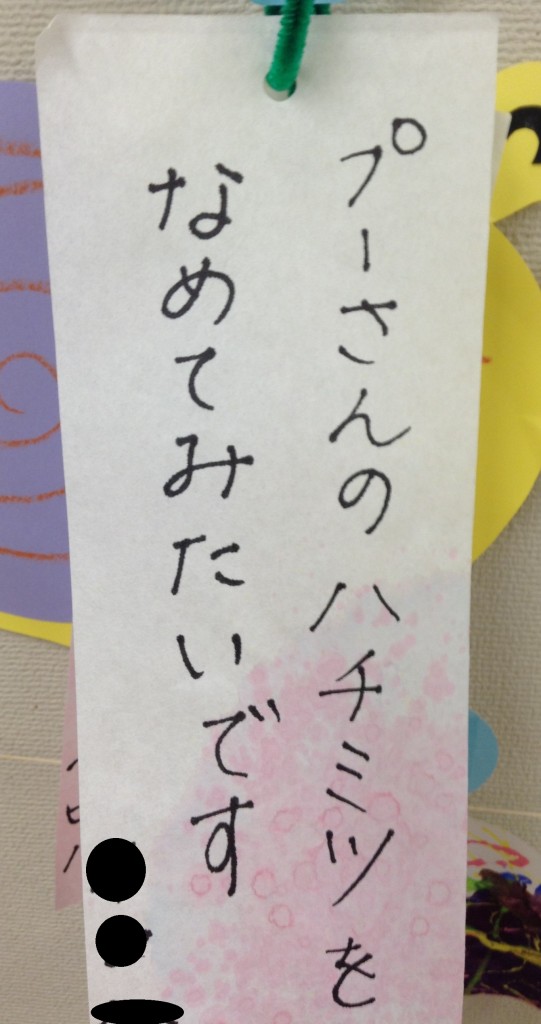 プーさんのハチミツを
なめてみたいです